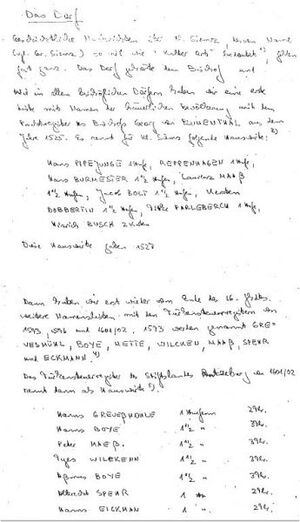 Das Dorf
Geschichtliche Nachrichten über Kl. Siemz, dessen Name
(vgl. Gr. Siemz) so viel wie "kalter Ort" bedeutet, gibt es
fast ganz. Das Dorf gehörte dem Bischof und
Wie in allen bischöflichen Dörfern haben wir eine erste
Liste mit Namen der bäuerlichen Bevölkerung mit dem
Pachtregister des Bischofs Georg von BLUMENTHAL aus dem
Jahre 1525. Es nennt für Kl. Siemz folgende Hauswirte:
Hans PIPEJUNGE 1 Hufe, REPPENHAGEN 1 Hufe,
Hans BURMESTER 1 1/2 Hufen, Laurenz MAAß
1 1/2 Hufen, Jacob BOLT 1 1/2 Hufen,
DOBBERTIN 1 1/2 Hufen, PARLEBERCH 1 Hufe,
Hinrich BUSCH 2 Hufen
Diese Hauswirte gaben 1527
Dann haben wir erst wieder vom Ende des 16. Jhdts.
weitere Namenslisten mit den Türkensteuerregistern von
1593, 1596 und 1601/02. 1593 werden genannt GRE-
VESMÜHL, BOYE, METTE, WILCKEN, MAAß, SPEHR
und EICKMANN.
Das Türkensteuerregister des Stiftslandes Ratzeburg von 1601/02
nennt dann als Hauswirte:
Hanns GREVEßMÖHLE 1 Hufen 2 Mr.
Hanns BOYE 1 1/2 " 3 Mr.
Peter MAEß 1 1/2 " 3 Mr.
WILCKENN 1 1/2 " 3 Mr.
BOYE 1 1/2 " 3 Mr.
Albrecht SPEHR 1 " 2 Mr.
Hanns EICKMAN 1 " 2 Mr.